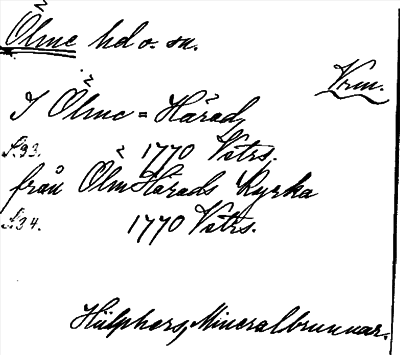 Ölme hd o. sn.
Vrm.
I Ölme = Härad,
S. 93. 1770 Vstrs.
från Ölm Härads Kyrka
S. 34. 1770 Vstrs.
Hülphers, Mineralbrunnar.